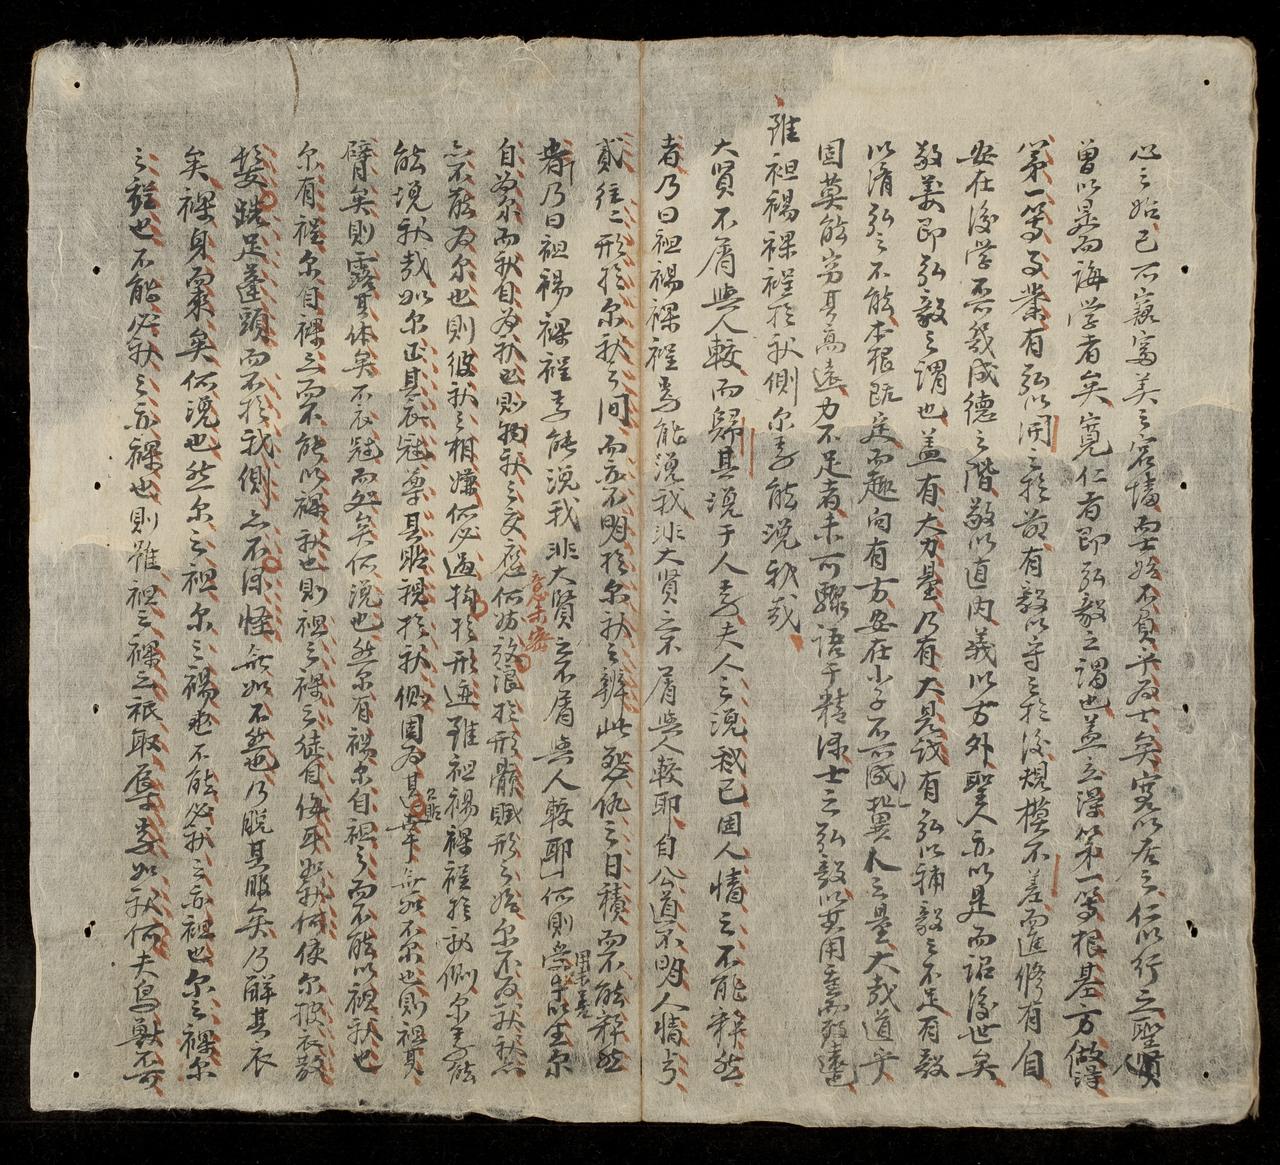 心之始已可窺富美之宮墻而士始不負乎為士矣寬以居之仁以行之聖賢
曾以是而誨学者矣寬仁者即弘毅之謂也盖立得第一等根基方做得
第一等事業有弘以開之於前有毅以守之於後規模不差而進修有自
安在後学不為幾成德之階敬以直內義以方外聖人亦以是而詔後世矣
敬義即弘毅之謂也盖有大力量乃有大見識有弘以輔毅之不足有毅
以濟弘之不能本根既定而趣向有方安在小子不可成
固莫能窮其高遠力不足者未可驟語于精深士之弘毅以其用重而致遠
雖袒裼裸裎於我側尔焉能浼我哉
大賢不屑與人較而歸其浼于人焉夫人之浼我已固人情之不能釋然
者乃曰袒裼裸裎焉能浼我非大賢之不屑與人較耶自公道不明人情
貳往二形於尔我之间而亦不明於尔我之辨此怨仇之日積而不能釋然
者乃曰袒裼裸裎焉能浼我非大賢之不屑與人較耶何則
自為尔而我自為我也則物我之交應何妨放浪於形骸賦形之後尔不為我我
亦不能為尔也則彼我之相嫌何必過拘於形迹雖袒裼裸裎於我側尔焉能
能浼我哉如尔正其衣冠尊其瞻視於我側固為其幸無如不尔也則袒其
臂矣則露其体矣不衣冠而处矣何浼也然尔有裼尔自袒之而不能以袒我也
尔有裎尔自裸之而不能以裸我也則袒之裸之徒自侮耳於我何使尔披衣散
髮跣足蓬頭而不於我側亦不深怪無如不然也乃脫其服矣乃解其衣
矣裸身而來矣何浼也然尔之袒尔之裼也不能必我之亦袒也尔之裸尔
之裎也不能必我之亦裸也則雖袒之裸之祇取辱焉如我何夫鳥獸不可